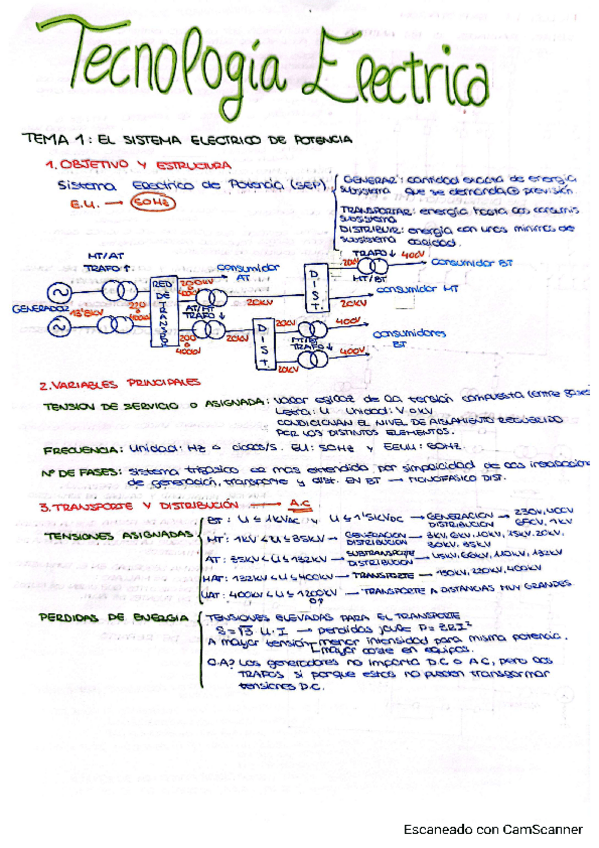 Tecnología Electrica
TEMA 1: EL SISTEMA ELECTRICO DE POTENCIA
1. OBJETIVO Y ESTRUCTURA
Sistema Electrico de Potencia (SEP)
E.U. → 50Hz
GENERAR: cantidad exacta de energía
subsistema que se demanda previsión.
TRANSPORTAR: energía hasta los consumos
subsistema
DISTRIBUIR: energía con unos mínimos de
subsistema calidad.
MT/AT
TRAFO ↑
GENERADOR
RED DE TRANSP.
220 400kV
consumidor AT
AT/MT
TRAFO ↓
20kV
DIST.
TRAFO ↓ 400V
20kV
MT/BT
consumidor BT
consumidor MT
20kV
220 400kV
20kV
DIST.
20kV
MT/BT
TRAFO ↓
400V
400V
20kV
consumidores BT
2. VARIABLES PRINCIPALES
TENSION DE SERVICIO O ASIGNADA: valor eficaz de la tensión compuesta (entre fases)
Letra: U Unidad: V o kV
CONDICIONAN EL NIVEL DE AISLAMIENTO REQUERIDO
POR LOS DISTINTOS ELEMENTOS.
FRECUENCIA: Unidad: Hz o ciclos/s. EU: 50Hz y EEUU: 60Hz.
Nº DE FASES: Sistema trifásico es mas extendido por simplicidad de las instalaciones
de generación, transporte y dist. EN BT → MONOFÁSICO DIST.
3. TRANSPORTE Y DISTRIBUCIÓN → A.C
TENSIONES ASIGNADAS
BT: U ≤ 1kVac y U ≤ 1'5kVDC → GENERACION DISTRIBUCION → 230V, 400V
690V, 1kV
MT: 1kV < U ≤ 35kV → GENERACION DISTRIBUCION → 3kV, 6kV, 10kV, 15kV, 20kV,
30kV, 35kV
AT: 35kV < U ≤ 132kV → SUBTRANSPORTE DISTRIBUCION → 45kV, 66kV, 110kV, 132kV
MAT: 132kV < U ≤ 400kV → TRANSPORTE → 150kV, 220kV, 400kV
UAT: 400kV < U ≤ 1200kV → TRANSPORTE A DISTANCIAS MUY GRANDES
PERDIDAS DE ENERGIA
TENSIONES ELEVADAS PARA EL TRANSPORTE
S = √3 U·I → perdidas joule P = 3RI²
A mayor tensión → menor intensidad para misma potencia.
mayor coste en equipos.
C.A? Los generadores no importa D.C o A.C, pero los
TRAFOS si porque estos no pueden transformar
tensiones D.C.
Escaneado con CamScanner